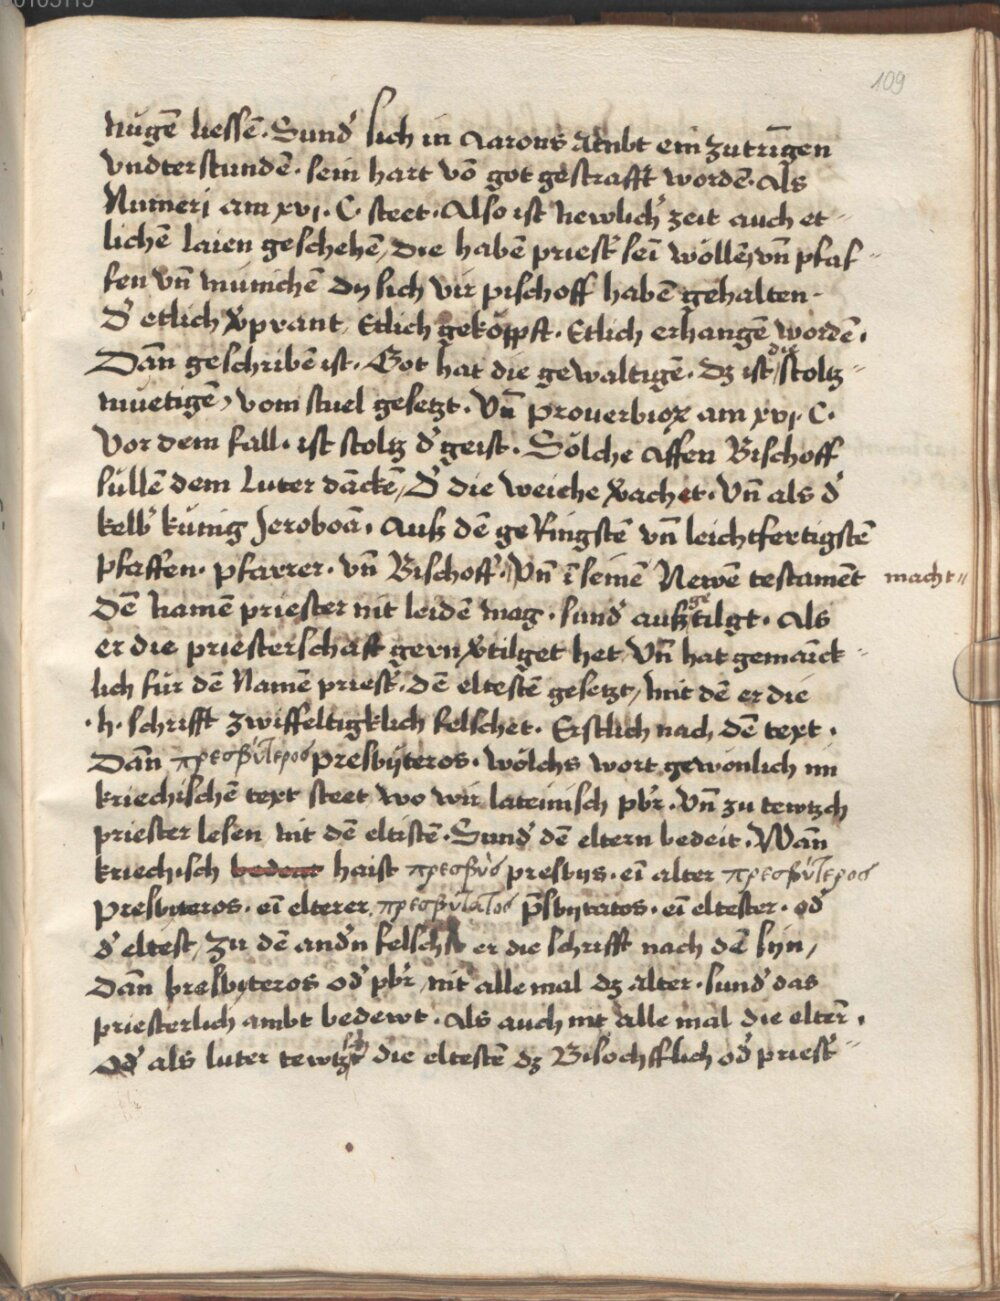 109
nugē liessē. Sund' sich in Aarons Ambt ein zutrīgen
vndterstundē. sein hart vō got gestrafft wordē. Als
Numerj am xvj. C. steet. Also ist newlich zeit auch et-
lichē laien geschehē, die habē priest' sei wöllē, vn̄ pfaf-
fen vn̄ münichē dy sich vir pischoff habē gehalten.
D' etlich v'prant, Etlich geköppft. Etlich erhangē wordē.
Dan̄ geschribē ist. Got hat die gewaltigē. dz ist die stoltz-
muetigē, vom stuel gesetzt. Vn̄ Prouerbioꝝ am xvj. C.
Vor dem fall. ist stoltz d' geist. Sölche affen Bischoff
süllē dem Luter dāckē, D' die weiche v'achet. Vn̄ als d'
kelb' künig Jeroboā. Auß dē geRingstē vn̄ leichtfertigstē
pfaffen. pfarrer. vn̄ Bischoff. Vn̄ ī seinē Newē testamēt macht
Dē namē priester nit leidē mag. sund' außgetilgt. Als
er die priesterschafft gern v'tilget het, Vn̄ hat gemaīck-
lich für dē Namē priest'. dē eltestē gesetzt, mit dē er die
.h. schrifft zwiffeltigklich felschet. Erstlich nach dē text.
Dan̄ πρεσβύτερος presbyteros. wölchs wort gewonlich im
kriechischē text steet wo wir lateinisch pbr̄. vn̄ zu tewtzch
priester lesen nit dē eltistē. Sund' dē eltern bedeit. Wan̄
kriechisch bedeut haist πρεσβύς presbys. eī alter πρεσβύτερος
presbyteros. eī elterer, πρεσβύτατος p̄sbytatos. eī eltester. od'
d' eltest, Zu dē and'n felscht er die schrifft nach dē syn,
Dan̄ presbyteros od' pbr̄, nit alle mal dz alter. sund' das
priesterlich ambt bedewt. Als auch nit alle mal die elter̄.
Od' als luter tewtzscht die eltestē dz Bisochfflich od' priest'-